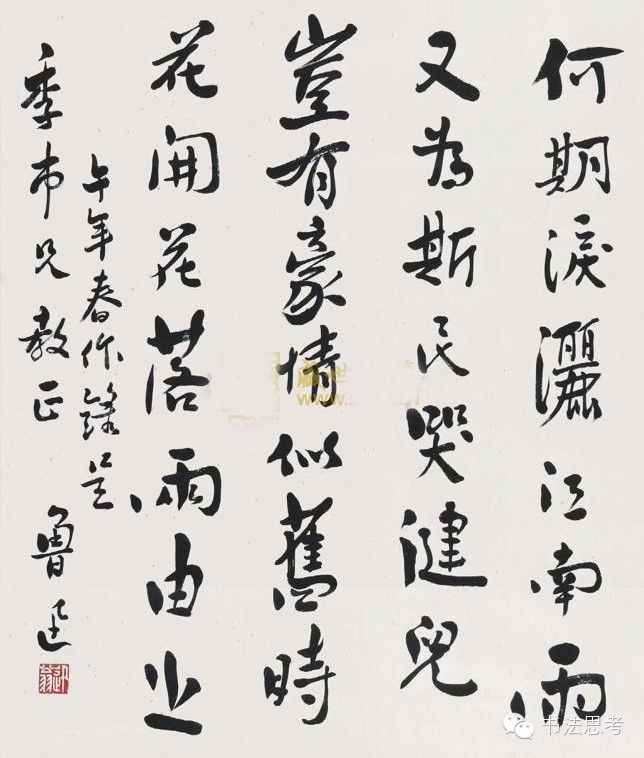 何期淚灑江南雨
又為斯民哭健兒
豈有豪情似舊時
花開花落兩由之
午年春作錄呈
季市兄教正 魯迅
盛世
书法思考